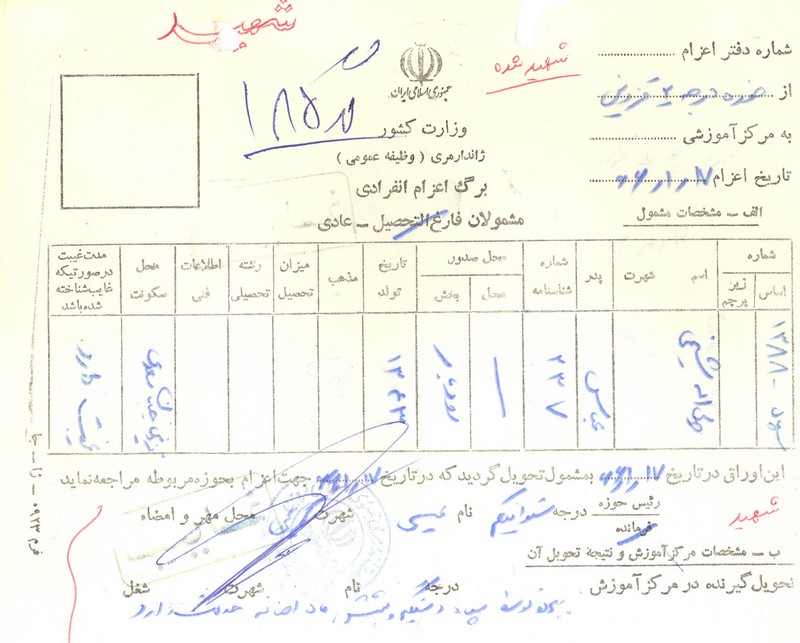 شهید
شهید شده
جمهوری اسلامی ایران
وزارت کشور
ژاندارمری ( وظیفه عمومی )
برگ اعزام انفرادی
مشمولان فارغ التحصیل – عادی
شماره دفتر اعزام
از حوزه درجه ۲ قزوین
به مرکز آموزشی
تاریخ اعزام
الف – مشخصات مشمول
شماره
اساس
زیر پرچم
اسم
شهرت
پدر
شماره شناسنامه
محل صدور
محل
بخش
تاریخ تولد
مذهب
میزان تحصیل
رشته تحصیلی
اطلاعات فنی
محل سکونت
مدت غیبت درصورتیکه غایب شناخته شده باشد
۱۳۸۸
عباس
۲۳۷
رودبار
۱۳۴۳
غیبت دارد
این اوراق در تاریخ بمشمول تحویل گردید که در تاریخ جهت اعزام بحوزه مربوطه مراجعه نماید
رئیس حوزه
فرمانده
درجه ستوانیکم نام عیسی شهرت محل مهر و امضاء
شهید
ب – مشخصات مرکز آموزش و نتیجهٔ تحویل آن
تحویل گیرنده در مرکز آموزش درجه نام شهرت شغل
فرم ۰۹۲۳ – تا – جا